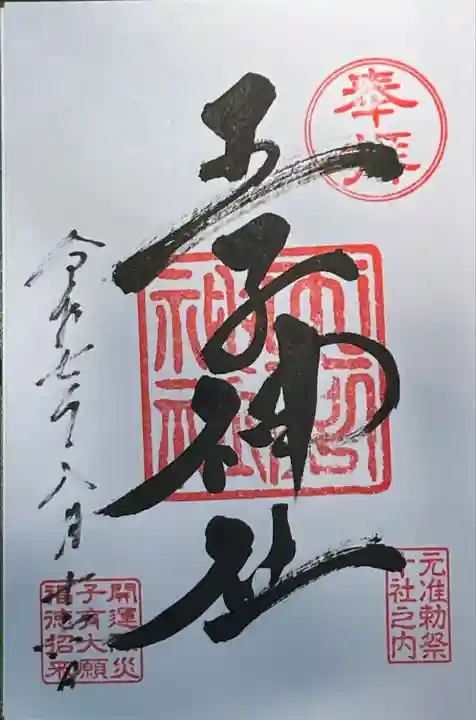 奉拝
王子神社
元准勅祭
十社之内
令和七年八月
開運除災
子育大願
福徳招来